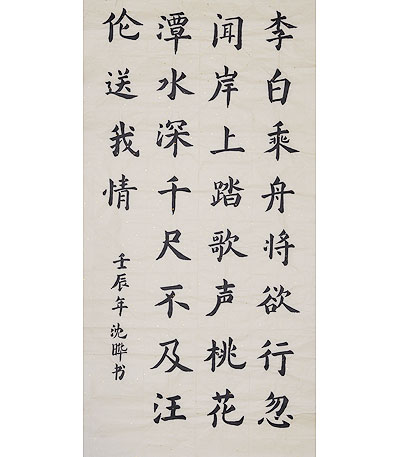 李白乘舟将欲行忽
闻岸上踏歌声桃花
潭水深千尺不及汪
伦送我情
壬辰年沈晔书